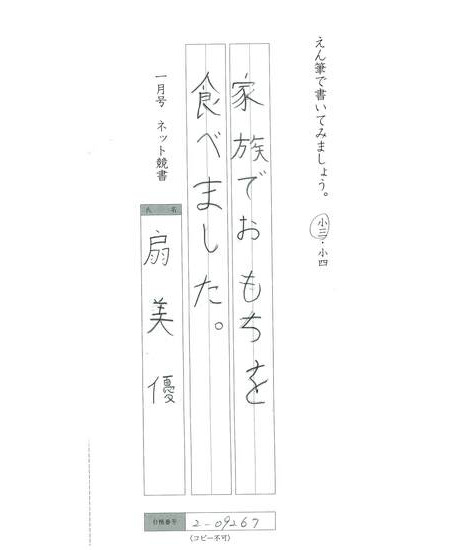 えん筆で書いてみましょう。
小三・小四
家族でおもちを
食べました。
一月号 ネット競書
氏 名
扇美優
合格番号 2-09267
(コピー不可)